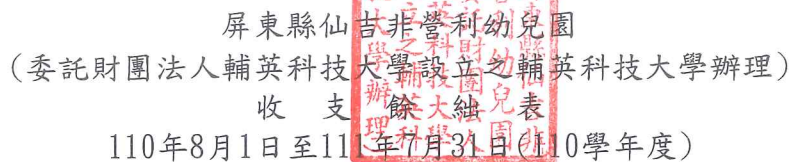 屏東縣仙吉非營利幼兒園
（委託財團法人輔英科技大學設立之輔英科技大學辦理）
收支餘絀表
110年8月1日至111年7月31日(110學年度)